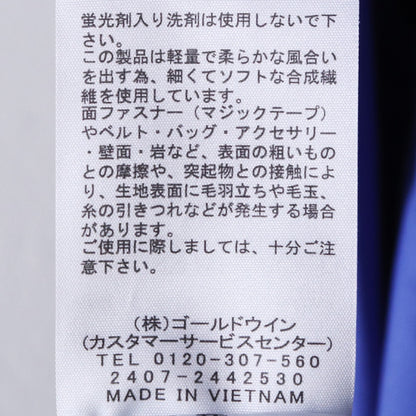 蛍光剤入り洗剤は使用しないで下
さい。
この製品は軽量で柔らかな風合い
を出す為、細くてソフトな合成繊
維を使用しています。
面ファスナー（マジックテープ）
やベルト・バッグ・アクセサリー
・壁面・岩など、表面の粗いもの
との摩擦や、突起物との接触によ
り、生地表面に毛羽立ちや毛玉、
糸の引きつれなどが発生する場合
があります。
ご使用に際しましては、十分ご注
意下さい。
（株）ゴールドウイン
(カスタマーサービスセンター)
TEL 0120-307-560
2407-2442530
MADE IN VIETNAM